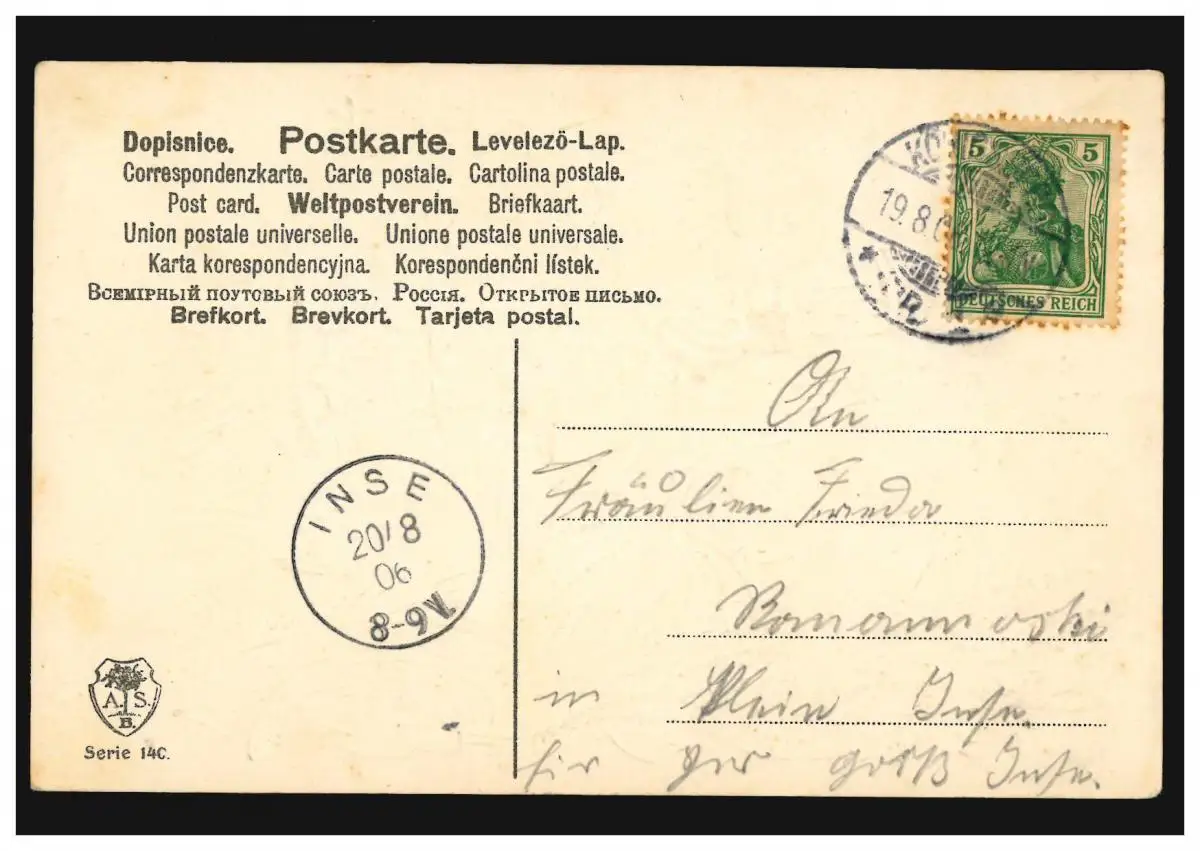 Dopisnice. Postkarte. Levelezö-Lap.
Correspondenzkarte. Carte postale. Cartolina postale.
Post card. Weltpostverein. Briefkaart.
Union postale universelle. Unione postale universale.
Karta korespondencyjna. Korespondenčni lístek.
Всемірный поутовый союзъ. Россія. Открытое письмо.
Brefkort. Brevkort. Tarjeta postal.
5 5
DEUTSCHES REICH
19.8.0
An
Fräulien Frieda
in Klein Inse.
groß Inse.
INSE
20/8
06
8-9V.
A.S.
B.
Serie 14C.